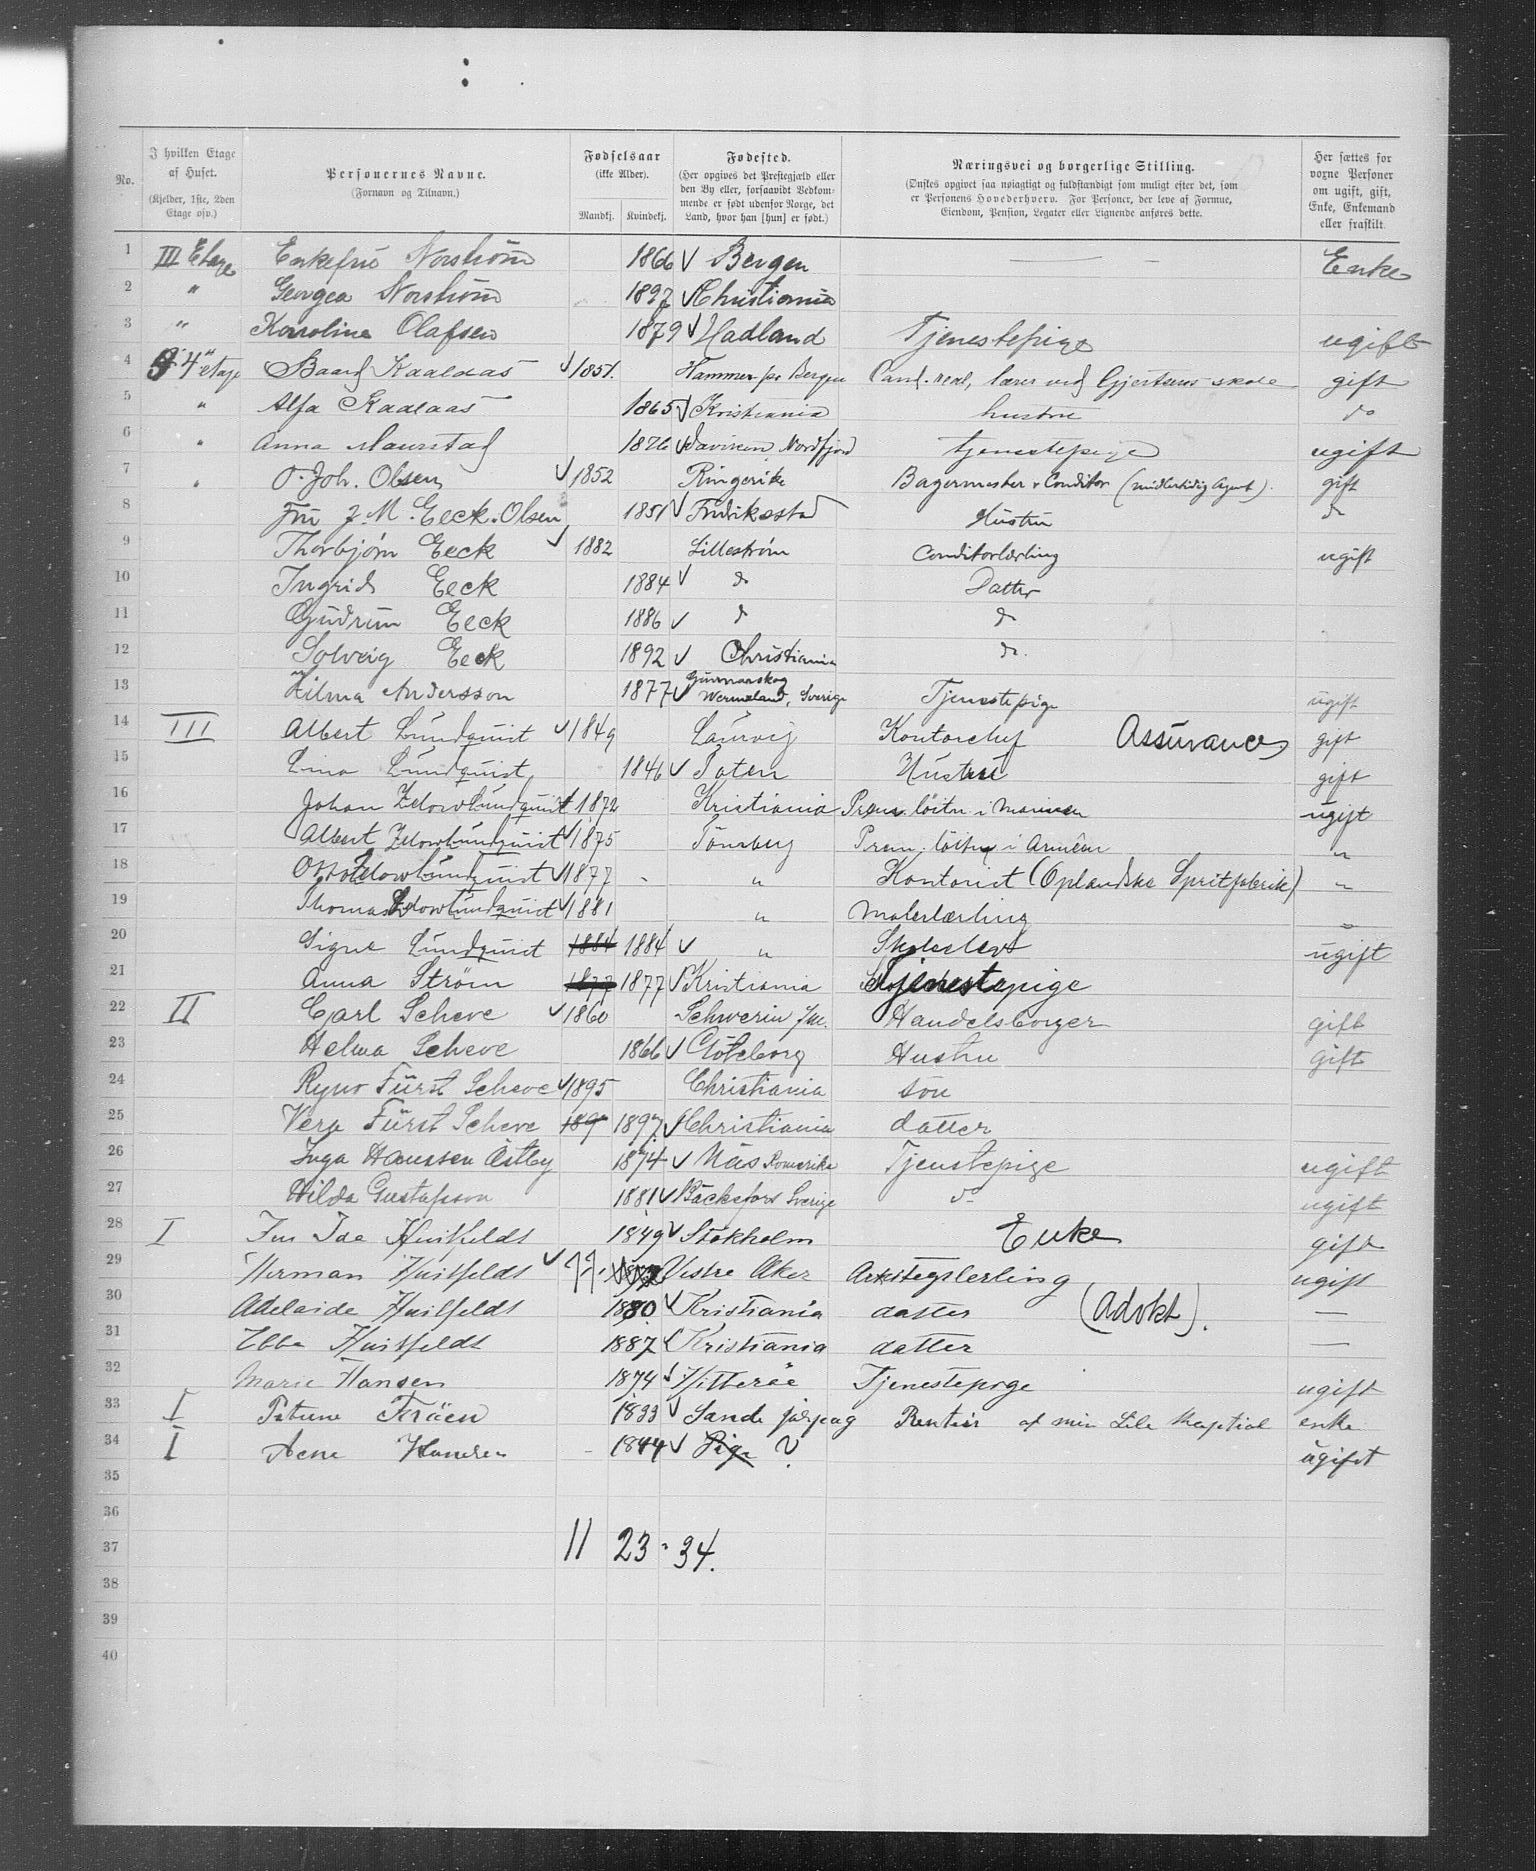 No. | I hvilken Etage af Huset. (Kjelder, 1ste, 2den Etage osv.) | Personernes Navne. (Fornavn og Tilnavn.) | Fødselsaar (ikke Alder). Mandkj. Kvindekj. | Fødested. (Her opgives det Prestegjæld eller den By eller, forsaavidt Vedkommende er født udenfor Norge, det Land, hvor han [hun] er født.) | Næringsvei og borgerlige Stilling. (Ønskes opgivet saa nøiagtigt og fuldstændigt som muligt efter det, som er Personens Hovederhverv. For Personer, der leve af Formue, Eiendom, Pension, Legater eller Lignende anføres dette. | Her sættes for voxne Personer om ugift, gift, Enke, Enkemand eller fraskilt.
1 III Etage Enkefru Norstrøm 1866 √ Bergen — — Enke
2 " Georgea Norstrøm 1897 √ Christiania
3 " Karoline Olafsen 1879 √ Hadland Tjenestepige ugift
4 4" etage Baard Kaalaas √ 1851. Hammer pr Bergen Cand. real, lærer ved Gjertsens skole gift
5 " Alfa Kaalaas 1865 √ Kristiania hustru do
6 " Anna Maurstad 1876 √ Daviken, Nordfjord tjenestepige ugift
7 " O. Joh. Olsen √ 1852 Ringerike Bagermester & Conditor (midlertidig Agent). gift
8 Fru J. M. Eeck-Olsen 1851 √ Fredriksstad Hustru do
9 Thorbjørn Eeck √ 1882 Lillestrøm Conditorlærling ugift
10 Ingrid Eeck 1884 √ do Datter
11 Gudrun Eeck 1886 √ do do
12 Solveig Eeck 1892 √ Christiania do.
13 Hilma Andersson 1877 √ Gunnarskog Wermeland, Sverige Tjenestepige ugift
14 III Albert Lundquist √ 1849 Laurvig Kontorchef Assurance gift
15 Lina Lundquist 1846 √ Toten Hustru gift
16 Johan Zelow Lundquist √ 1872 Kristiania Prem. löitn i Marinen ugift
17 Albert Zelow Lundquist √ 1875 Tönsberg Prem. löitn i Arméen "
18 Otto Zelow Lundquist √ 1877 - " Kontorist (Oplandske Spritfabrik) "
19 Thomas Zelow Lundquist √ 1881 " Malerlærling "
20 Signe Lundquist 1884 1884 √ " Skoleelev ugift
21 Anna Ström 1877 1877 √ Kristiania Tjenestepige
22 II Carl Scheve √ 1860 Schwerin Handelsborger gift
23 Helma Scheve 1866 √ Göteborg Hustru gift
24 Ryno Fürst Scheve √ 1895 Christiania sön
25 Vera Fürst Scheve 189 1897 √ Christiania datter
26 Inga Hanssen Östby 1874 √ Näs Romerike Tjenstepige ugift
27 Hilda Gustafsson 1881 √ Bäckefors Sverige do ugift
28 I Fru Ida Huitfeldt 1849 √ Stokholm Enke gift
29 Herman Huitfeldt √ 77. Vestre Aker Arkitegtlerling ugift
30 Adelaide Huitfeldt 1880 √ Kristiania datter (Advkt). —
31 Ebba Huitfeldt 1887 √ Kristiania datter —
32 Marie Hansen 1874 √ Hitteröe Tjenestepige ugift
33 I Petrine Feräen 1833 √ Sande Rentier af min Lile Kaptial enke
34 I Hansen - 1844 √ Pige ? ugift
35
36
37 11 23 - 34.
38
39
40